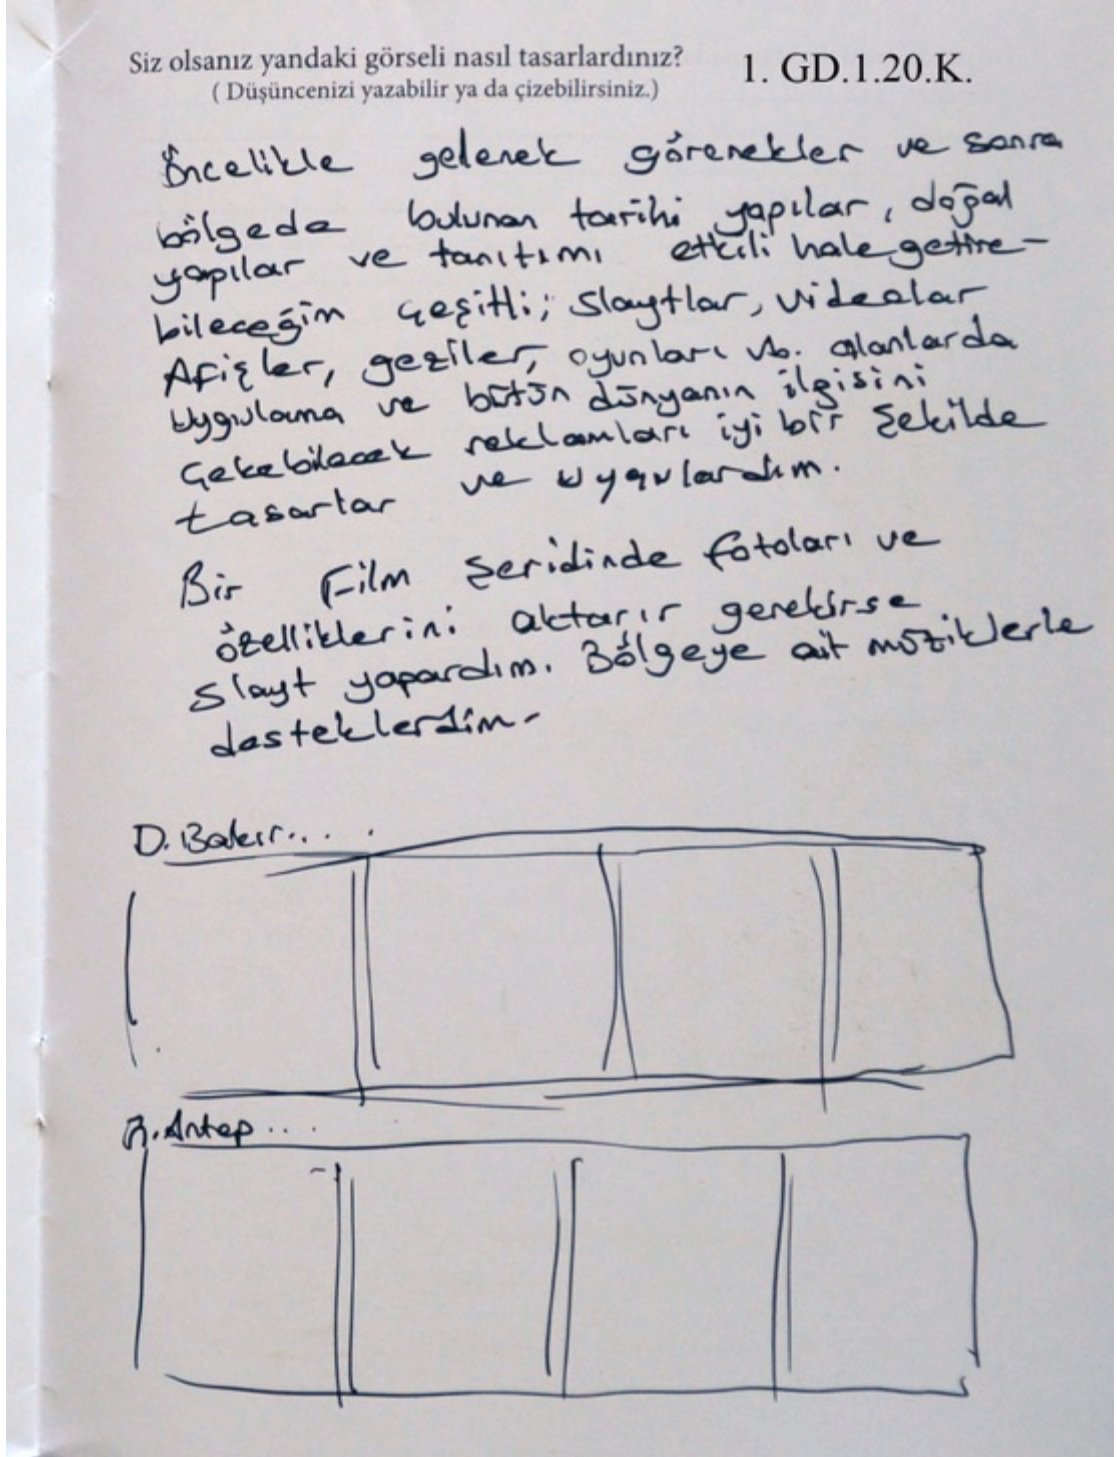 Siz olsanız yandaki görseli nasıl tasarlardınız?
1. GD.1.20.K.
( Düşüncenizi yazabilir ya da çizebilirsiniz.)
Öncelikle gelenek görenekler ve sonra
bölgede bulunan tarihi yapılar, doğal
yapılar ve tanıtımı etkili hale getire-
bileceğim çeşitli; slaytlar, videolar
Afişler, geziler, oyunları vb. alanlarda
uygulama ve bütün dünyanın ilgisini
çekebilecek reklamları iyi bir şekilde
tasarlar ve uygulardım.
Bir Film şeridinde fotoları ve
özelliklerini aktarır gerekirse
slayt yapardım. Bölgeye ait müziklerle
desteklerdim-
D. Bakır....
Antep...